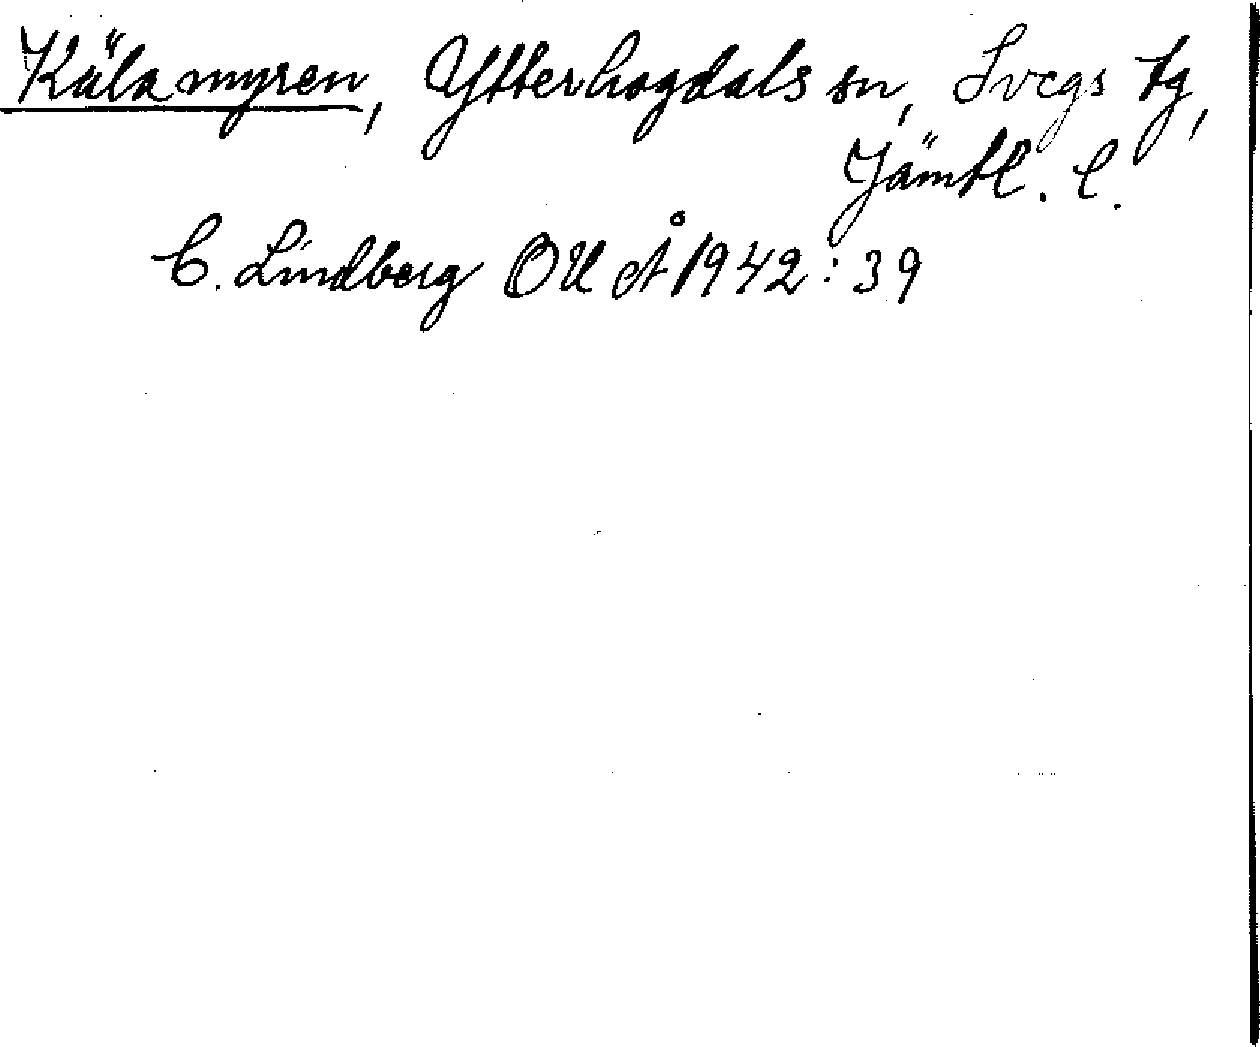 Kälamyren, Ytterhogdals sn, Svegs tg,
Jämtl. l.
C. Lindberg OUÅ 1942:39